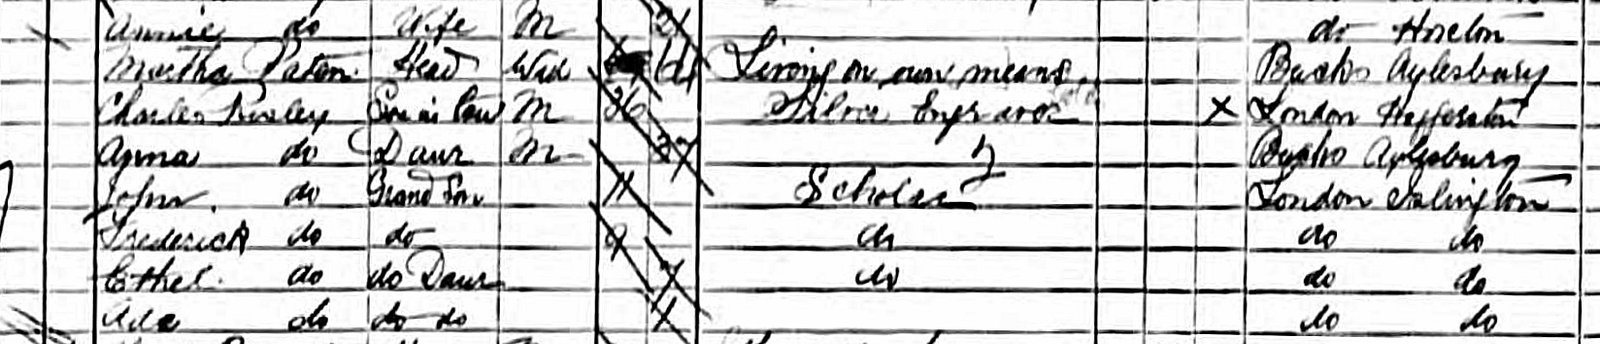 Annie do Wife M do Hoxton
Martha Paton Head Wid Living on own means Bucks Aylesbury
Charles Son in law M 36 Silver Engraver X London
do Daur M 37 Bucks Aylesbury
John do Grand Son 11 Scholar London Islington
Frederick do do 9 do do do
Ethel do do Daur 7 do do do
Ada do do do do do